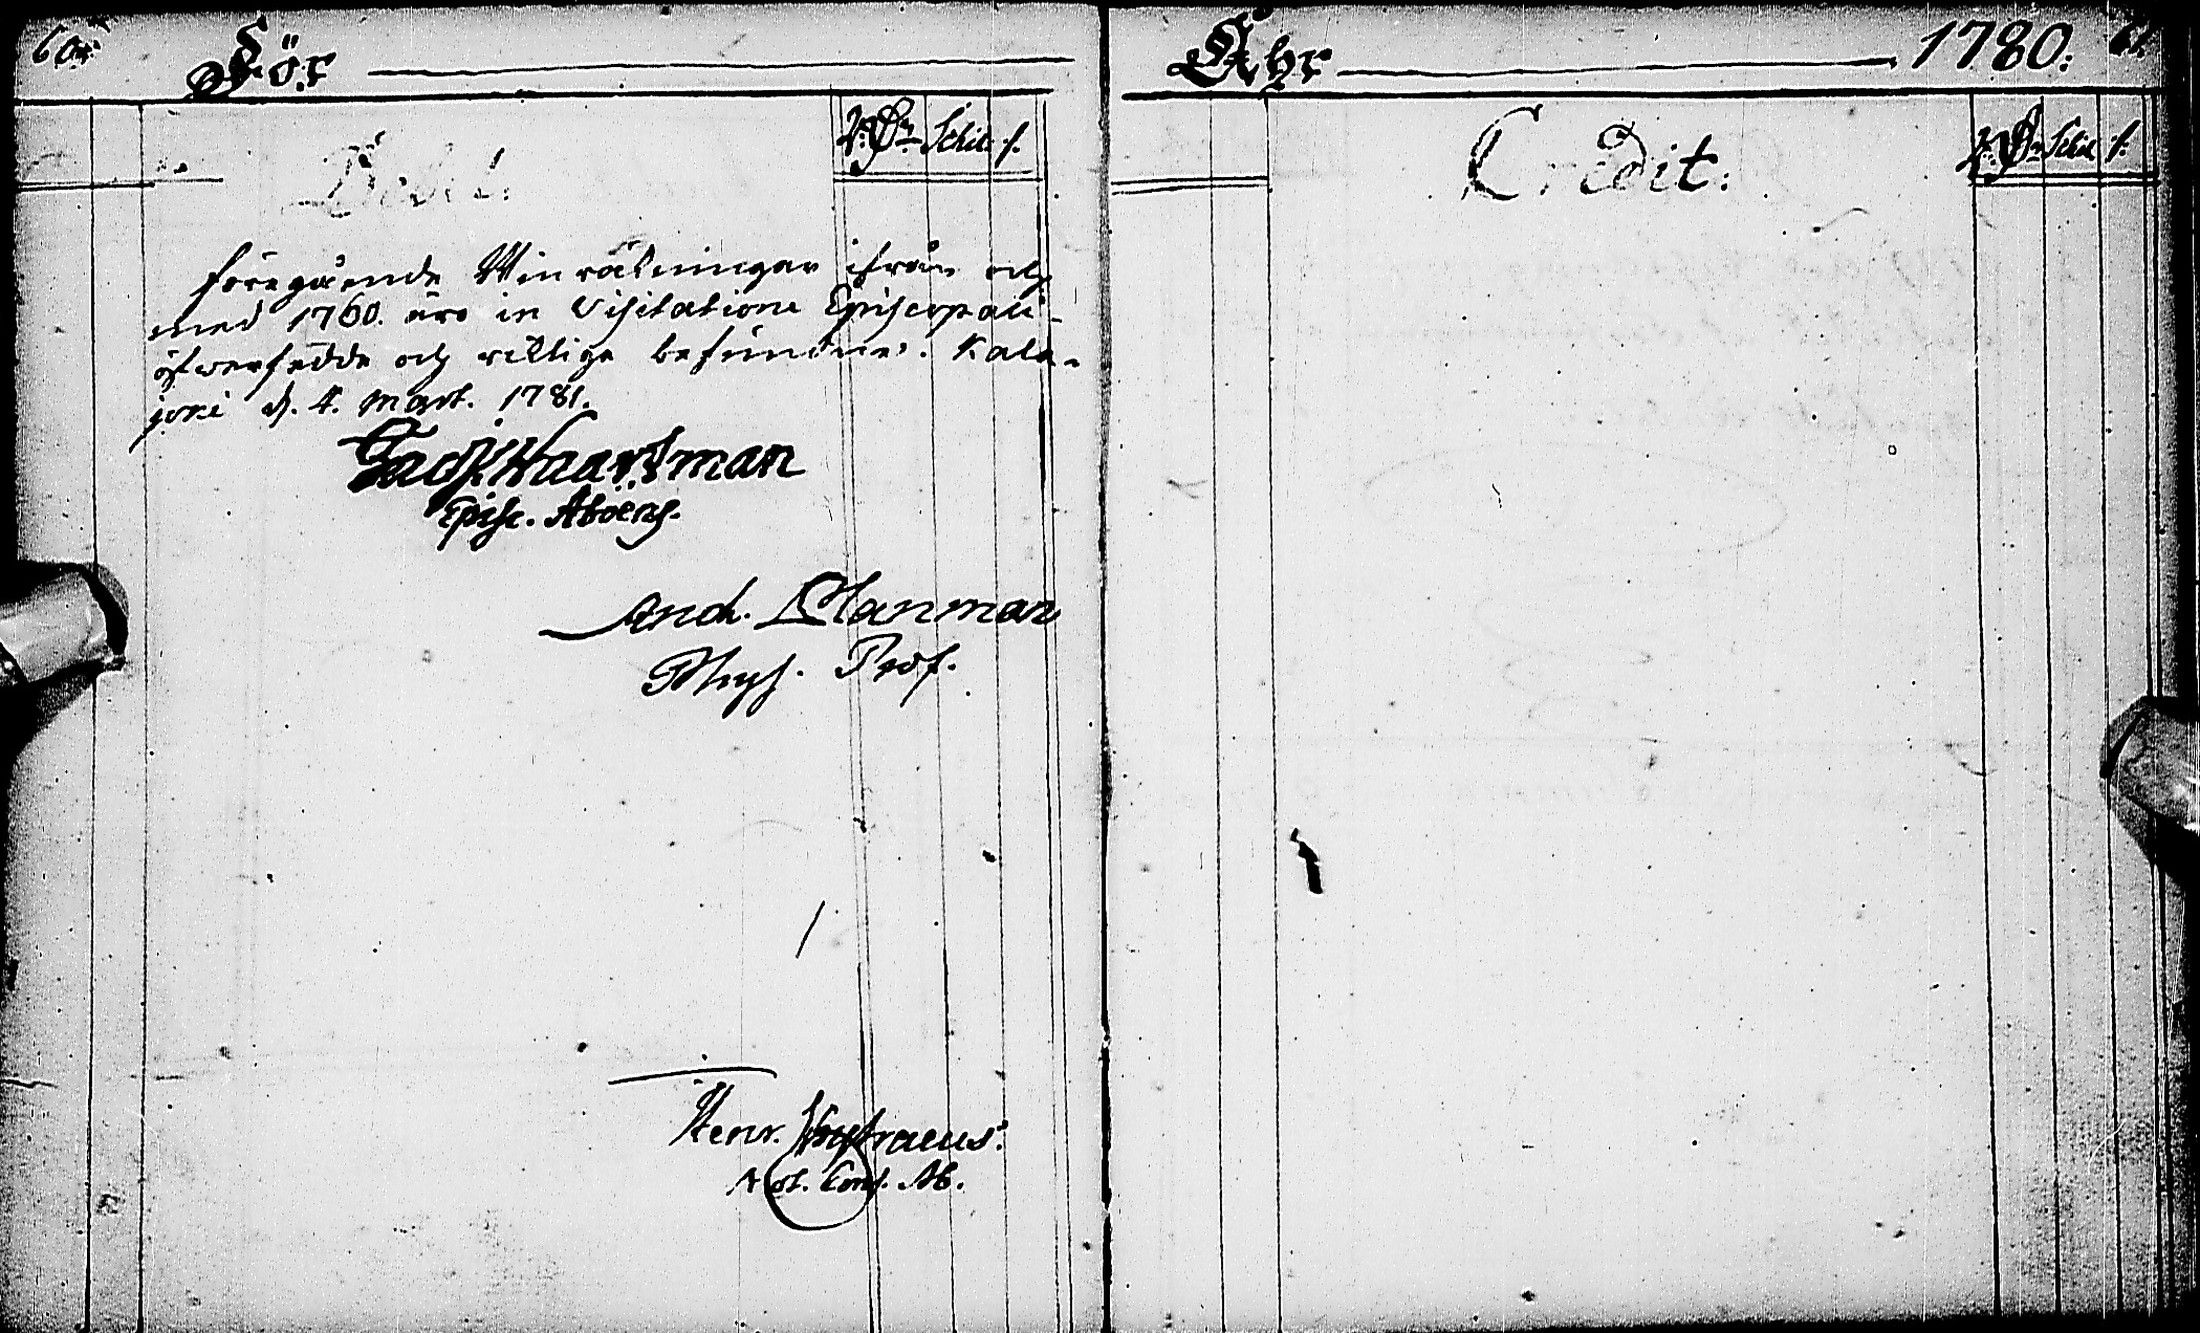 60.
För
Debet.
R:dr Schil: f.
föregående Winräkningar ifrån och
med 1760. äro in Visitatione Episcopali
öfwersedde och richtige befundne. Kala-
joki d. 4. Mart. 1781.
Jac. Haartman
Episc. Aboens.
And. Planman
Phys. Prof.
Henr.
Not. Cons. Ab.
Åhr 1780.
61.
Credit.
R:dr Schil f.